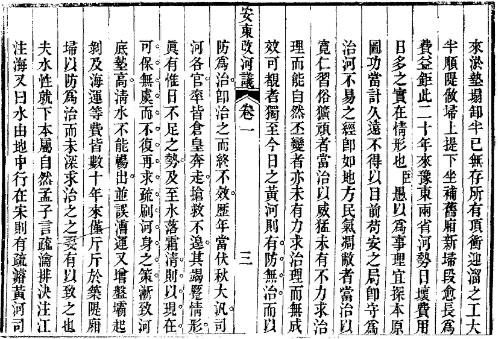 來淤墊塌卸半無存所有頂衝迎溜之工大
半順隄做埽上提下坐補舊廂新埽段愈長爲
費益鉅此二十年來豫東兩省河勢日壞費用
日多之實在情形也臣愚以爲事理宜探本原
圖功當計久遠不得以目前苟安之局卽守爲
治河不易之經卽如地方民氣凋敝者當治以
寬仁習俗獷頑者當治以威猛未有不力求治
理而能自然丕變者亦未有力求治理而無成
效可觀者獨至今日之黃河則有防無治而以
安東改河議 卷一 三
防爲治卽治之而終不效歷年當伏秋大汛司
河各官率皆倉皇奔走搶救不遑其竭蹷情形
眞有惟日不足之勢及至水落霜清則以現在
可保無虞而不復再求疏刷河身之策漸致河
底墊高清水不能暢出並誤漕運又增盤壩起
剝及海運等費皆數十年來僅斤斤於築隄廂
埽以防爲治而未深求治之之要有以致之也
夫水性就下本屬自然孟子言疏瀹排決注江
注海又曰水由地中行在未則有疏濬黃河司